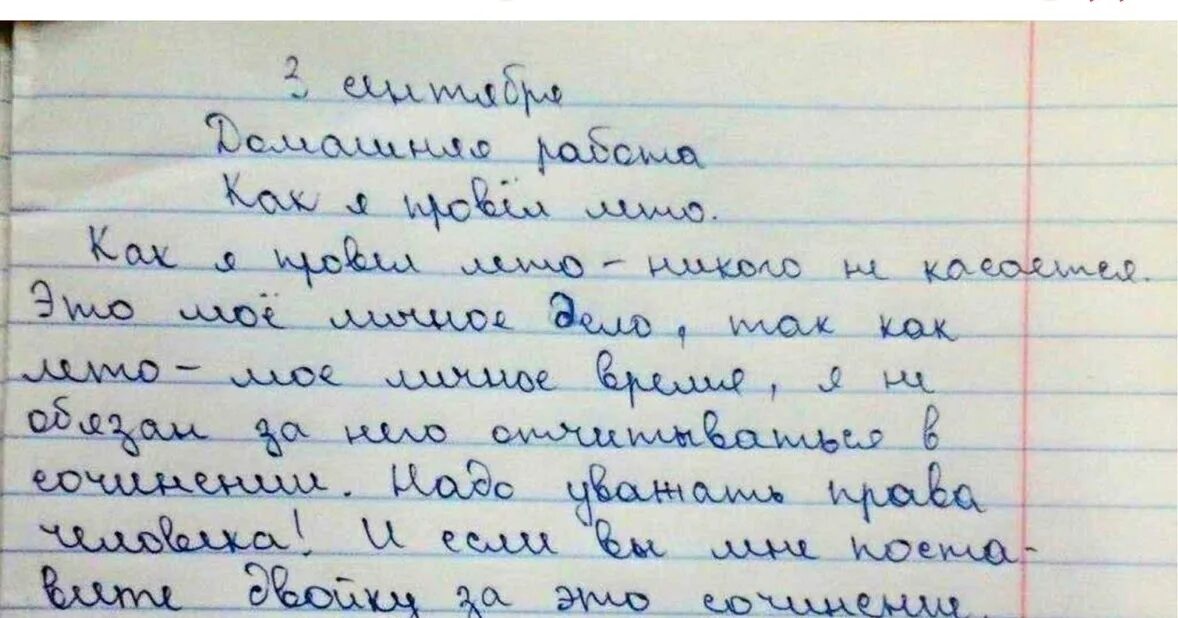 3 сентября
Домашняя работа
Как я провёл лето.
Как я провел лето - никого не касается.
Это моё личное дело, так как
лето - мое личное время, я не
обязан за него отчитываться в
сочинении. Надо уважать права
человека! И если вы мне поста-
вите двойку за это сочинение